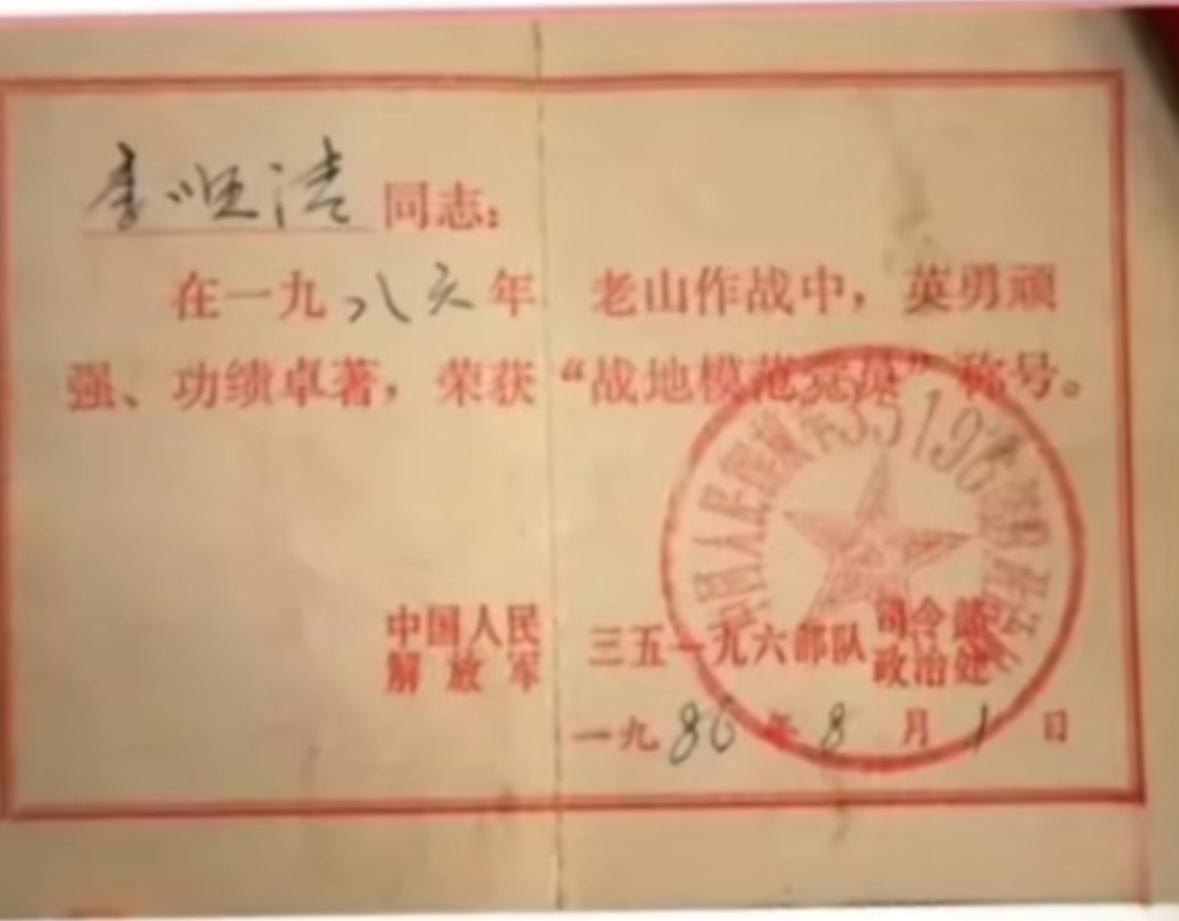 李顺清 同志：
在一九八六年 老山作战中，英勇顽
强、功绩卓著，荣获“战地模范党员”称号。
中国人民解放军 三五一九六部队 司令部 政治处
一九86年8月1日
中国人民解放军35196部队